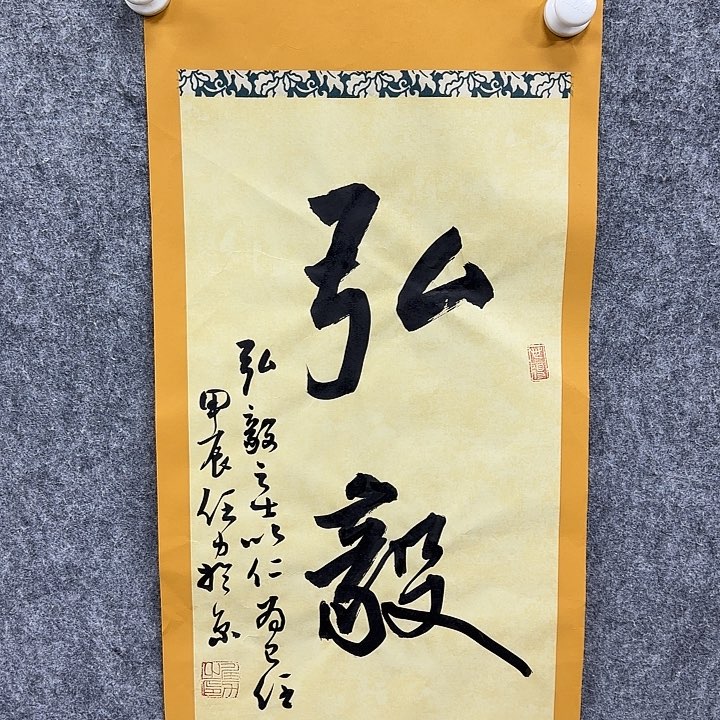 弘毅
弘毅之士以仁为己任
甲辰任力於京